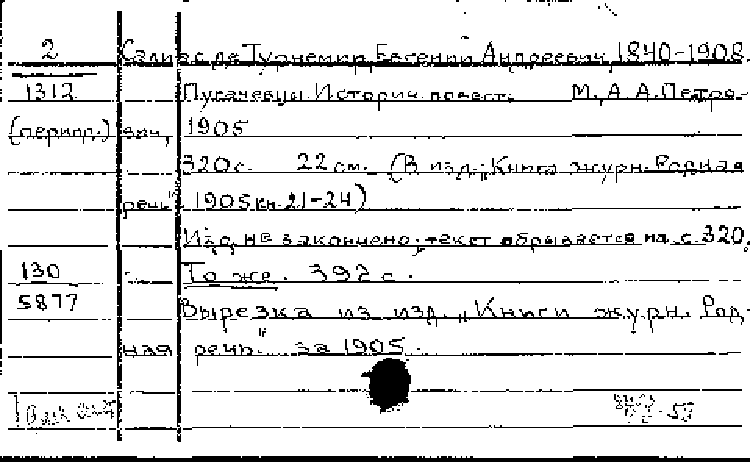 2 Салиас де Турнемир Евгений Андреевич, 1840-1908.
1312 Пугачевцы. Историч. повест. М., А.А. Петро-
(период.) вич, 1905
320 с. 22 см. (В изд.: „Книги журн. Родная
речь" 1905 кн. 21-24)
Изд. не закончено; текст обрывается на с. 320.
130 - То же. 392 с.
5877 Вырезка из изд. „Книги журн. Род-
ная речь" за 1905.